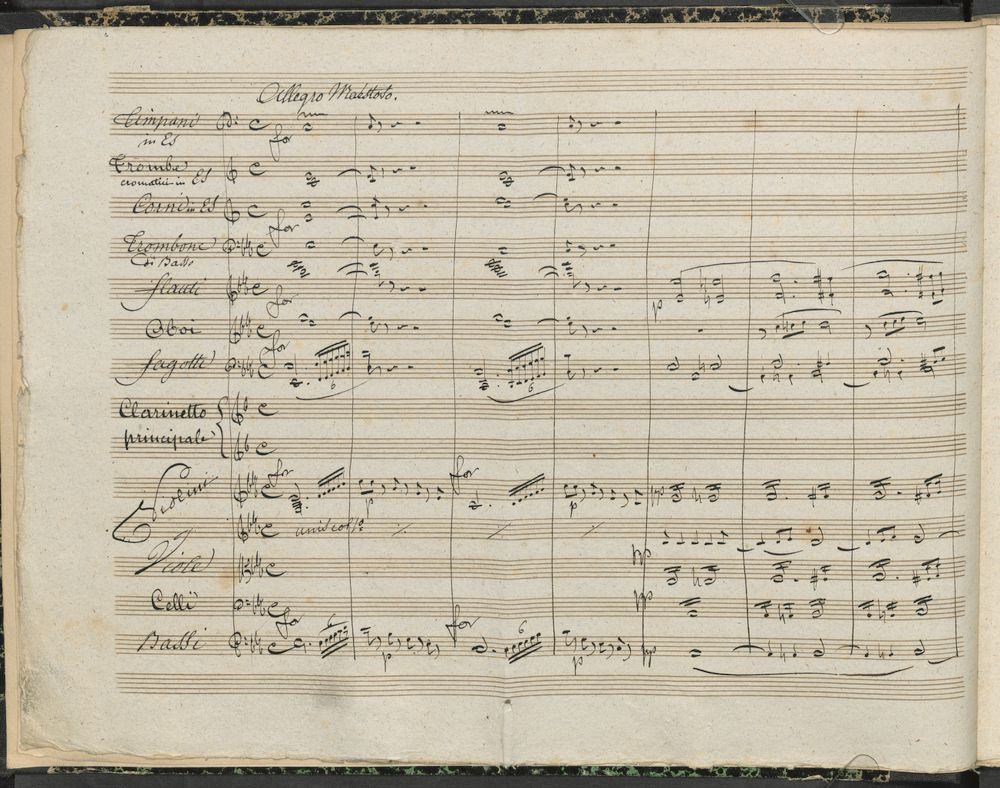 Allegro Maestoso.
Timpani
in Es
for
Trombe
cromatici in Es
Corni in Es
for
Trombone
di Basso
Flauti
for
p
Oboi
for
Fagotti
6
6
Clarinetto
principale
Violini
for
for
p
p
pp
unis col 1º
pp
Viole
pp
Celli
for
for
6
6
Bassi
p
p
pp